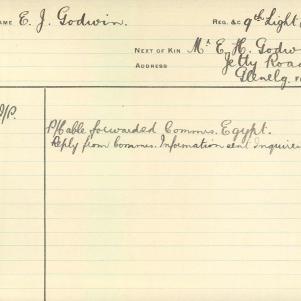 NAME E. J. Godwin. REG. &C 9th Light
NEXT OF KIN Mr E. H. Godwi
ADDRESS Jetty Road
Glenelg.
P/Cable forwarded Commrs. Egypt.
Reply from Commrs. Information sent Inquirer